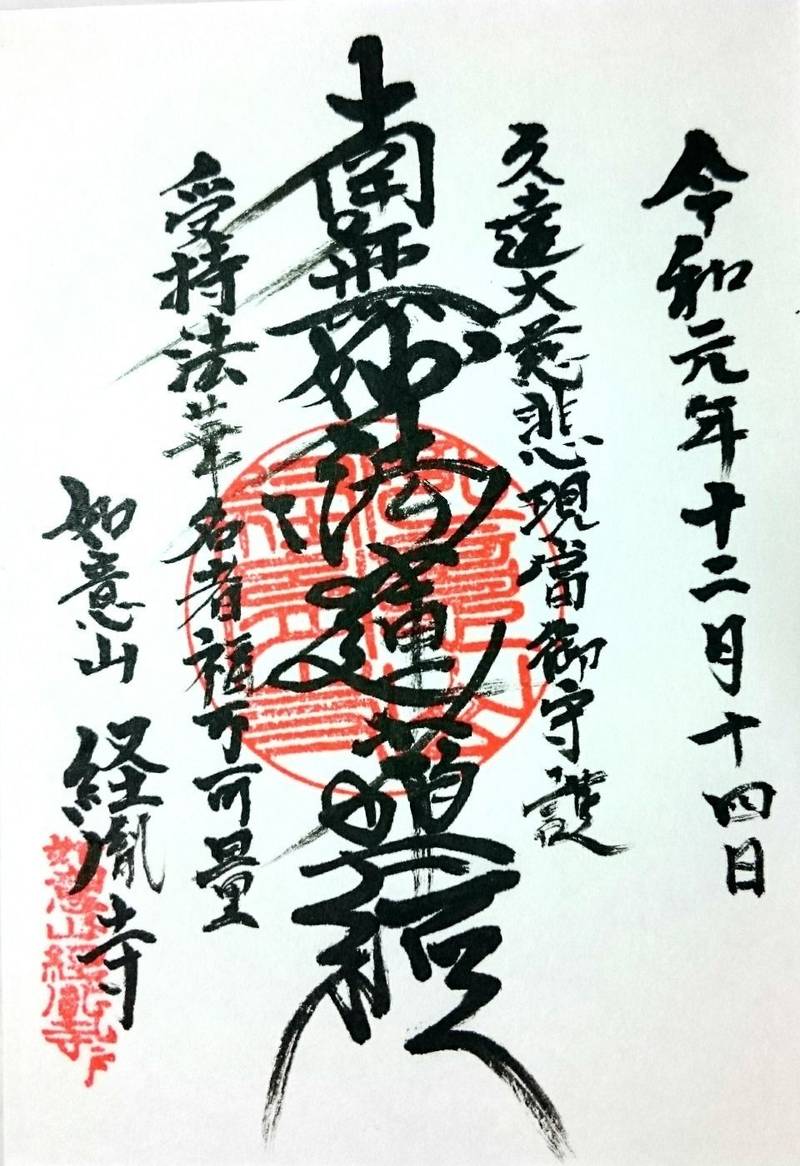 令和元年十二月十四日
久遠大慈悲現當御守護
南無妙法蓮華経
受持法華名者福不可量
如意山 経胤寺
如意山経胤寺